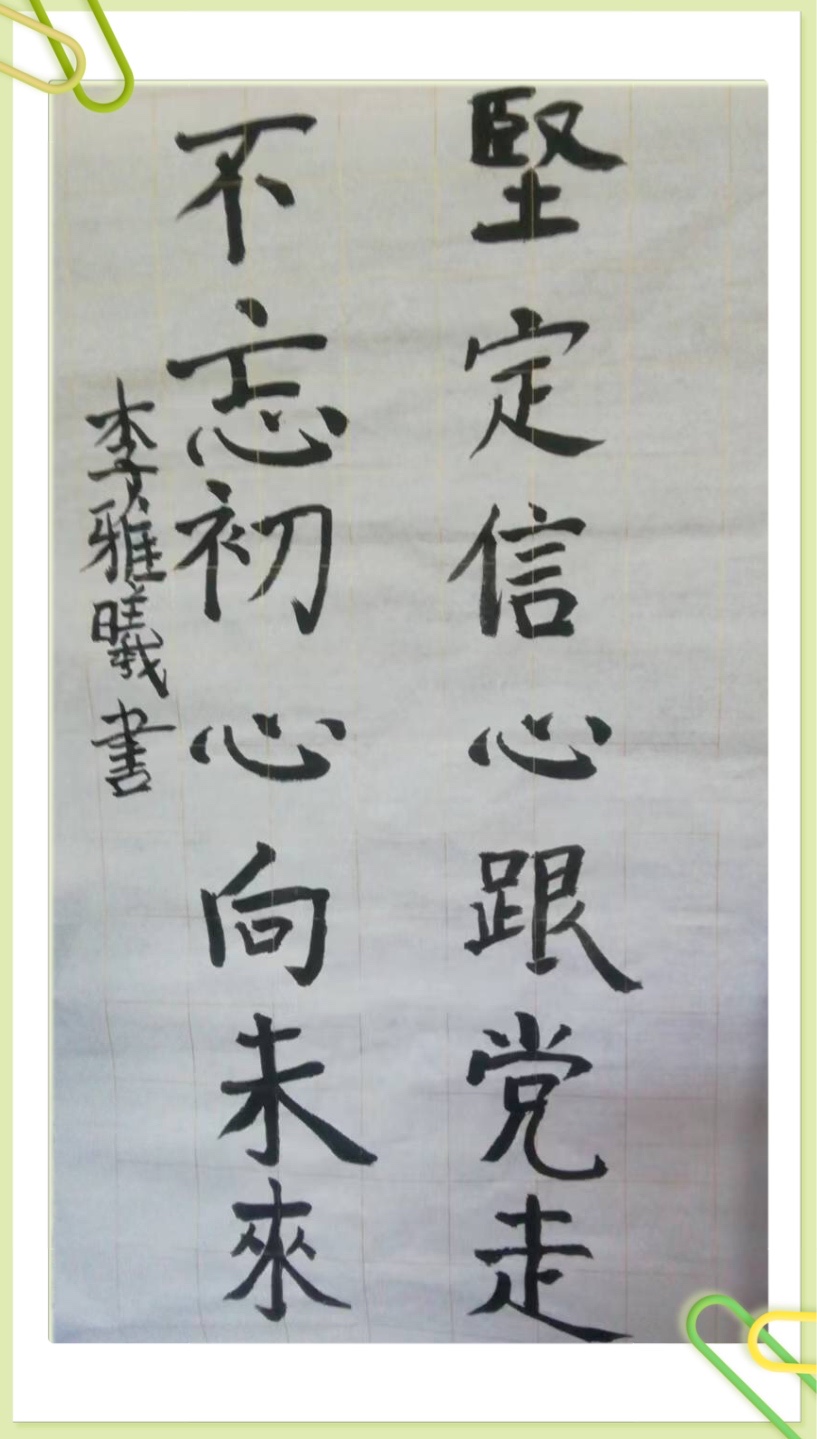 堅定信心跟党走
不忘初心向未來
李雅曦書